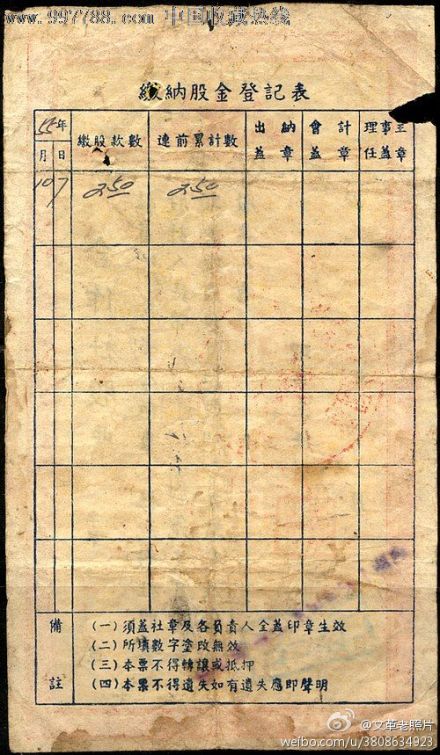 www.997788.com 中国收藏热线
繳納股金登記表
55年
月 日
繳股款數
連前累計數
出納蓋章
會計蓋章
理事主任蓋章
10 7 2.50 2.50
備註
(一) 須蓋社章及各負責人全蓋印章生效
(二) 所填數字塗改無效
(三) 本票不得轉讓或抵押
(四) 本票不得遺失如有遺失應即聲明
@文革老照片
weibo.com/u/3808634923